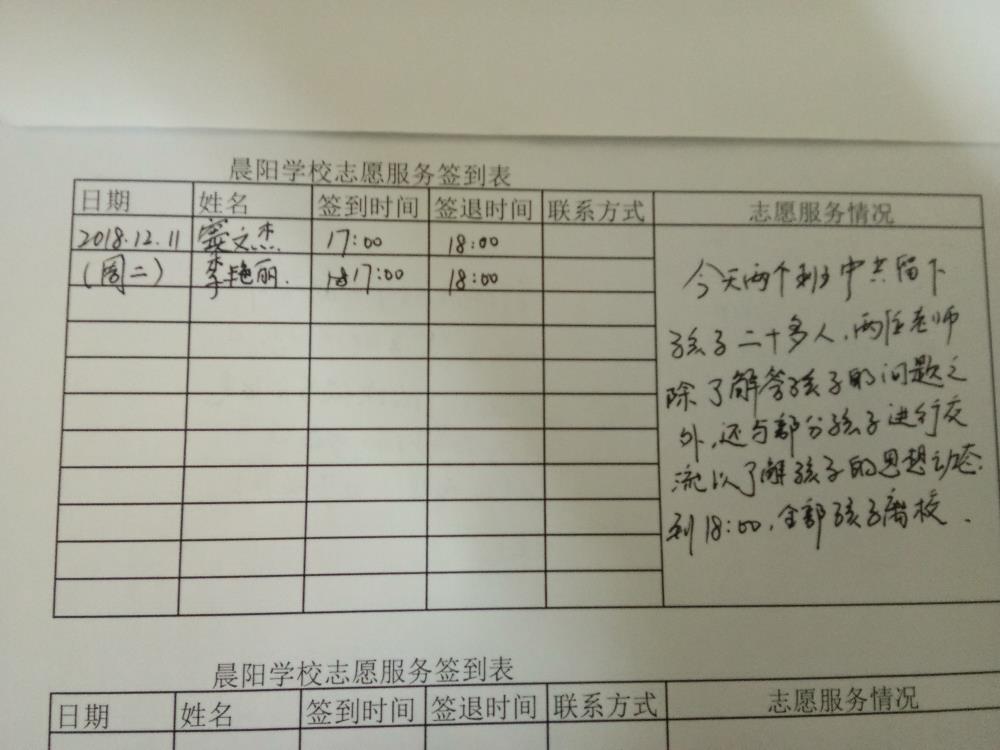 晨阳学校志愿服务签到表
日期 姓名 签到时间 签退时间 联系方式 志愿服务情况
2018.12.11 窦文杰 17:00 18:00
(周二) 李艳丽. 17:00 18:00
今天两个班中共留下
孩子二十多人,两位老师
除了解答孩子的问题之
外,还与部分孩子进行交
流以了解孩子的思想动态.
到18:00,全部孩子离校.
晨阳学校志愿服务签到表
日期 姓名 签到时间 签退时间 联系方式 志愿服务情况